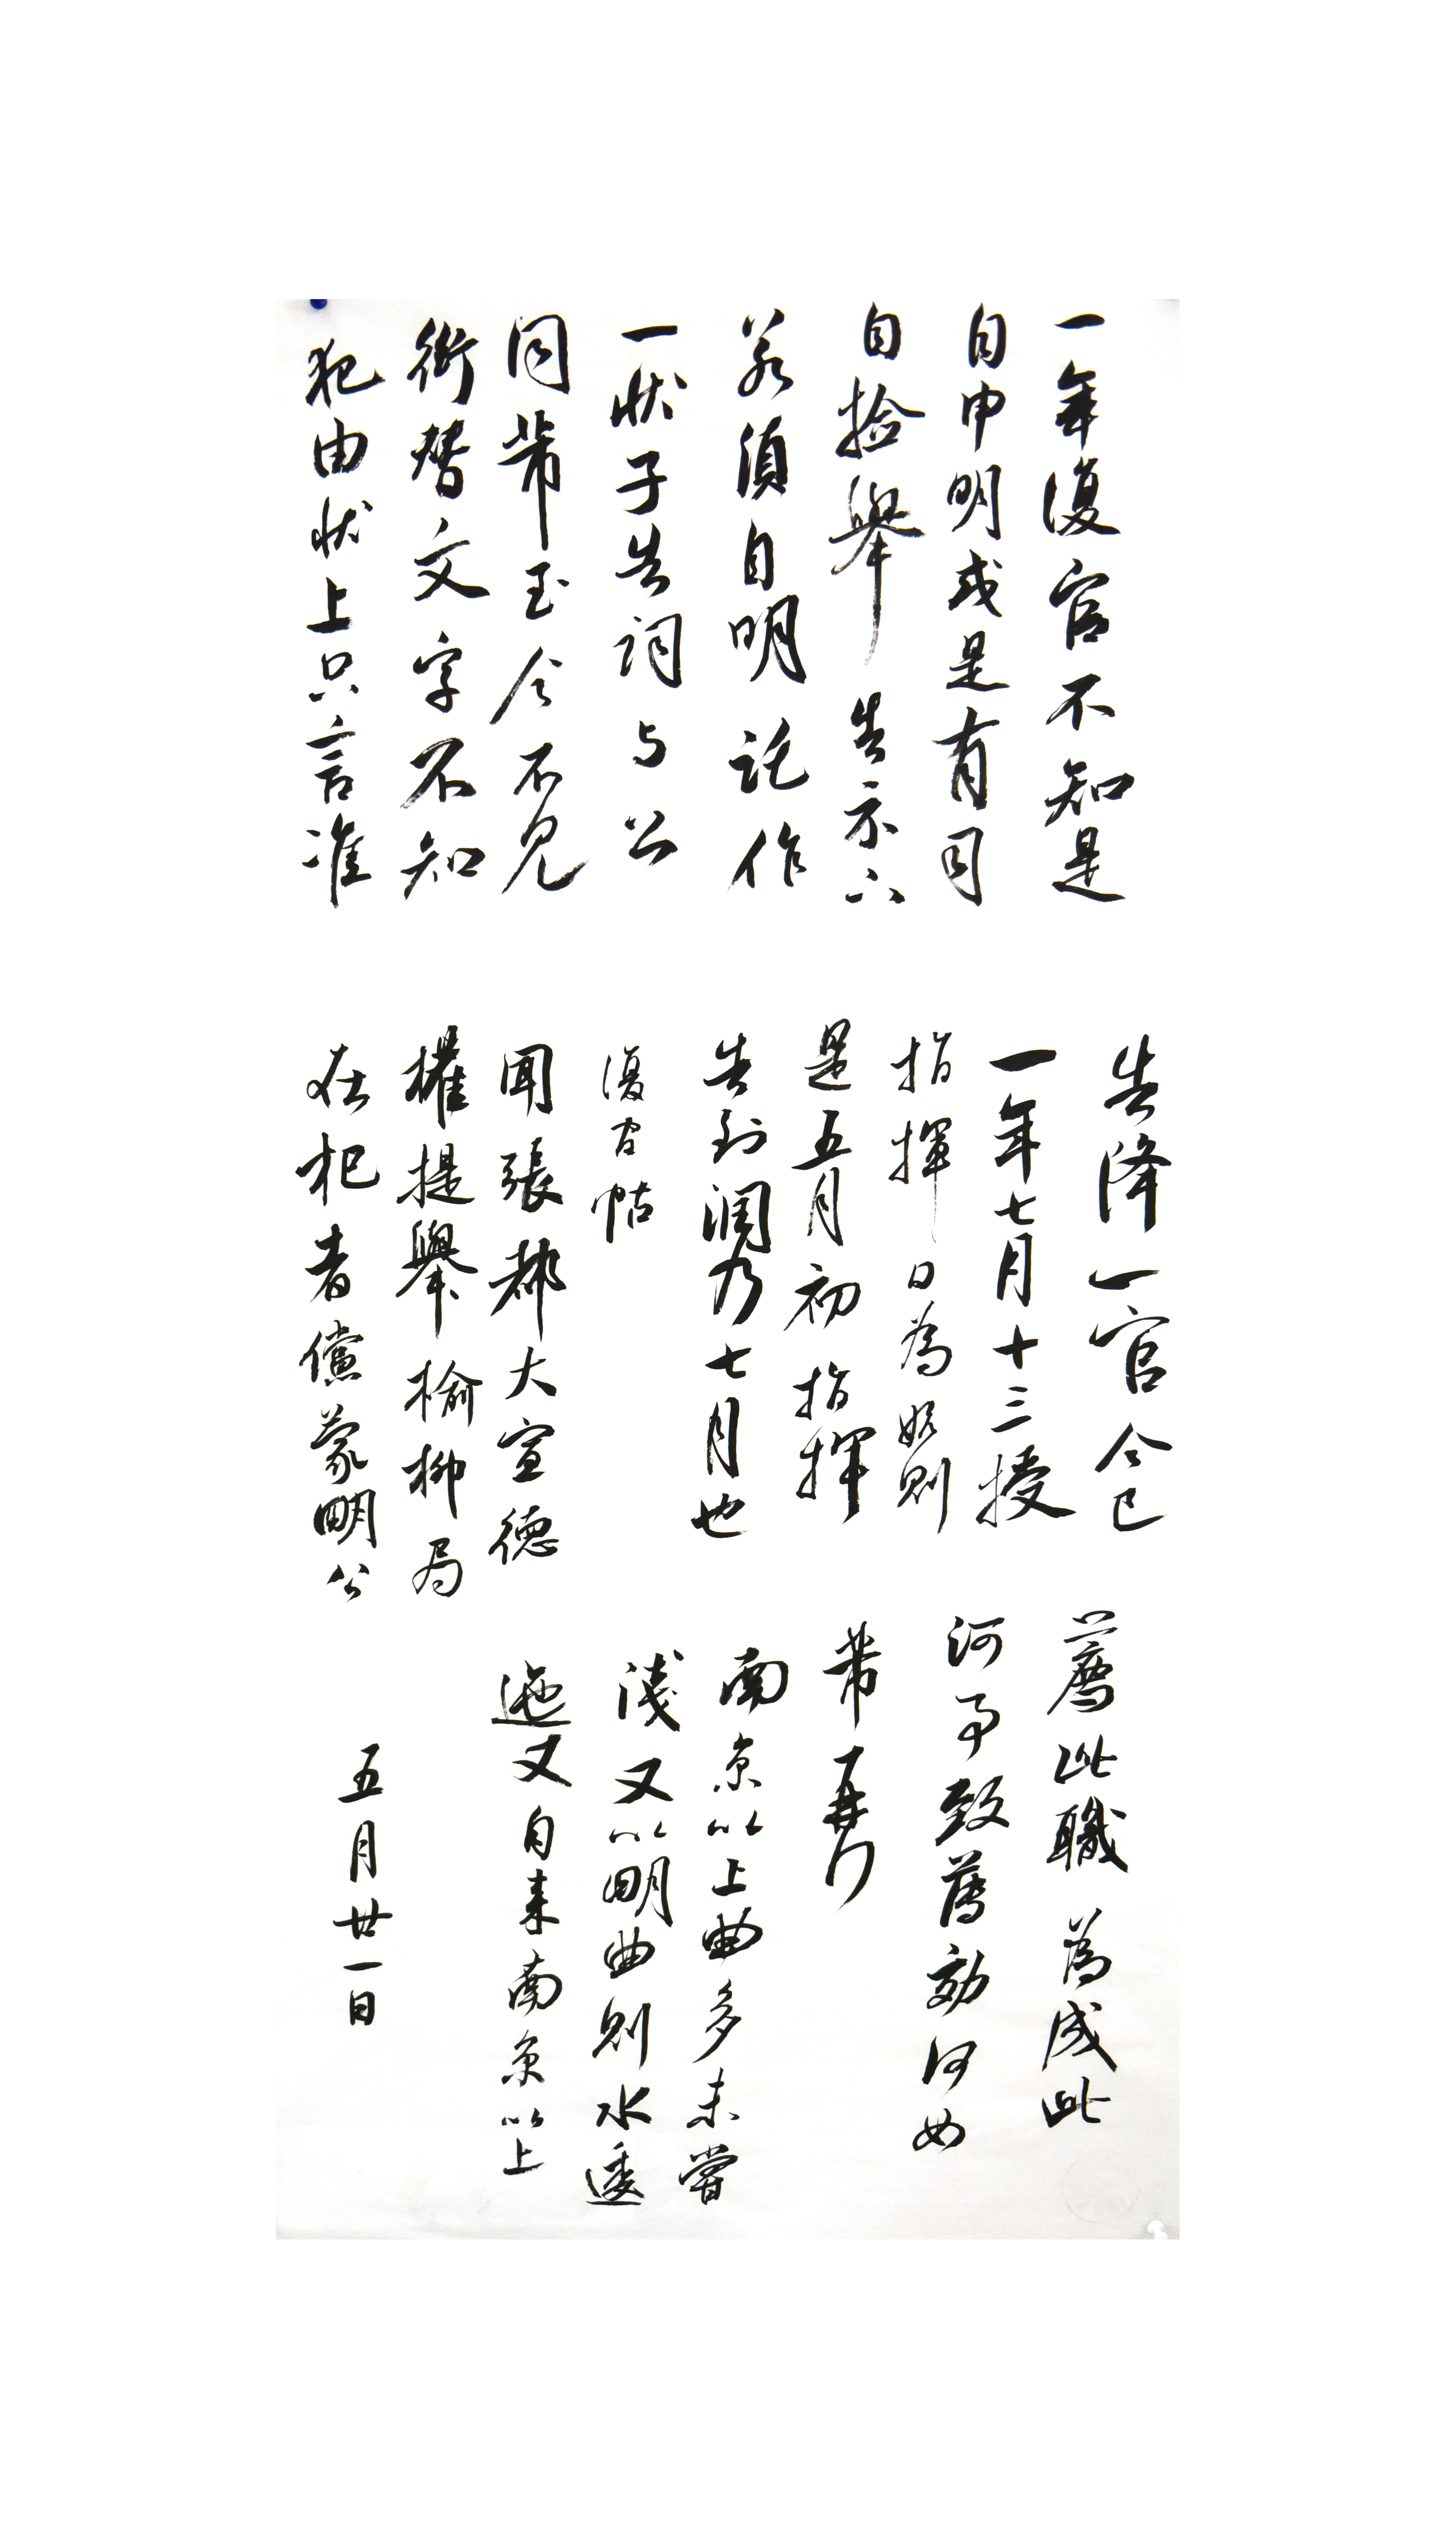 一年復官不知是
自申明或是有司
自撿舉告示六
若須自明託作
一狀子告詞与公
同芾至今不見
衝替文字不知
犯由狀上只言准
告降一官今已
一年七月十三授
指揮日為始則
是五月初指揮
告到潤乃七月也
復官帖
聞張都大宣德
權提舉榆柳局
在杞者儻蒙明公
薦此職為成此
河事致薦効何如
芾再拜
南京以上曲多未嘗
淺又以明曲則水逶
迤又自来南京以上
五月廿一日